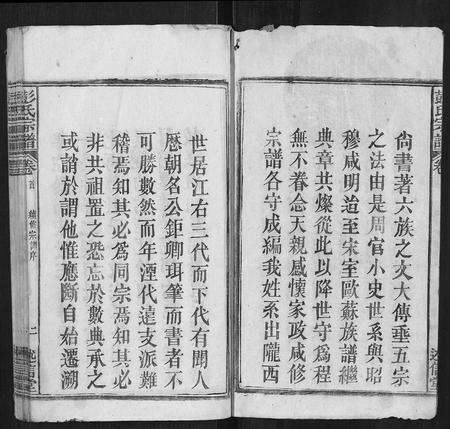 尚書著六族之文大傳垂五宗
之法由是周官小史世系與昭
穆咸明迨至宋室歐蘇族譜繼
典章共燦從此以降世守爲程
無不眷念天親感懷家政咸修
宗譜各守成編我姓系出隴西
世居江右三代而下代有聞人
歷朝名公鉅卿珥筆而書者不
可勝數然而年湮代遠支派難
稽焉知其必爲同宗焉知其必
非共祖置之恐忘於數典承之
或誚於謂他惟應斷自始遷溯
彭氏宗譜
卷首
續修宗譜序
二
述信堂
彭氏宗譜
卷
述信堂